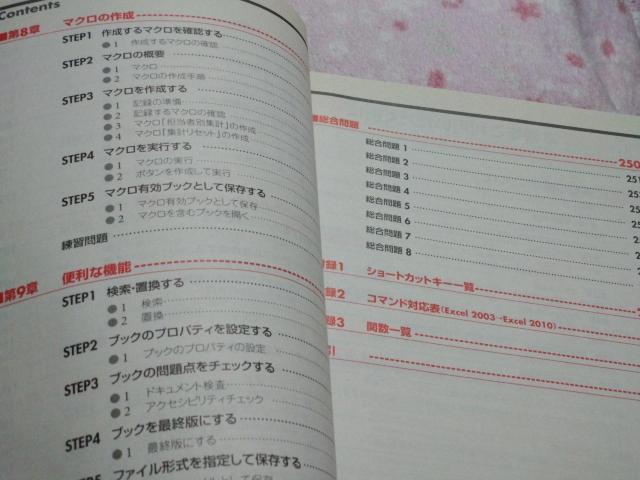 Contents
■第8章 マクロの作成
STEP1 作成するマクロを確認する
●1 作成するマクロの確認
STEP2 マクロの概要
●1 マクロ
●2 マクロの作成手順
STEP3 マクロを作成する
●1 記録の準備
●2 記録するマクロの確認
●3 マクロ「担当者別集計」の作成
●4 マクロ「集計リセット」の作成
STEP4 マクロを実行する
●1 マクロの実行
●2 ボタンを作成して実行
STEP5 マクロ有効ブックとして保存する
●1 マクロ有効ブックとして保存
●2 マクロを含むブックを開く
練習問題
■第9章 便利な機能
STEP1 検索・置換する
●1 検索
●2 置換
STEP2 ブックのプロパティを設定する
●1 ブックのプロパティの設定
STEP3 ブックの問題点をチェックする
●1 ドキュメント検査
●2 アクセシビリティチェック
STEP4 ブックを最終版にする
●1 最終版にする
ファイル形式を指定して保存する
■総合問題 250
総合問題 1 251
総合問題 2
総合問題 3
総合問題 4
総合問題 5
総合問題 6
総合問題 7
総合問題 8
録1 ショートカットキー一覧
録2 コマンド対応表(Excel 2003→Excel 2010)
録3 関数一覧
引